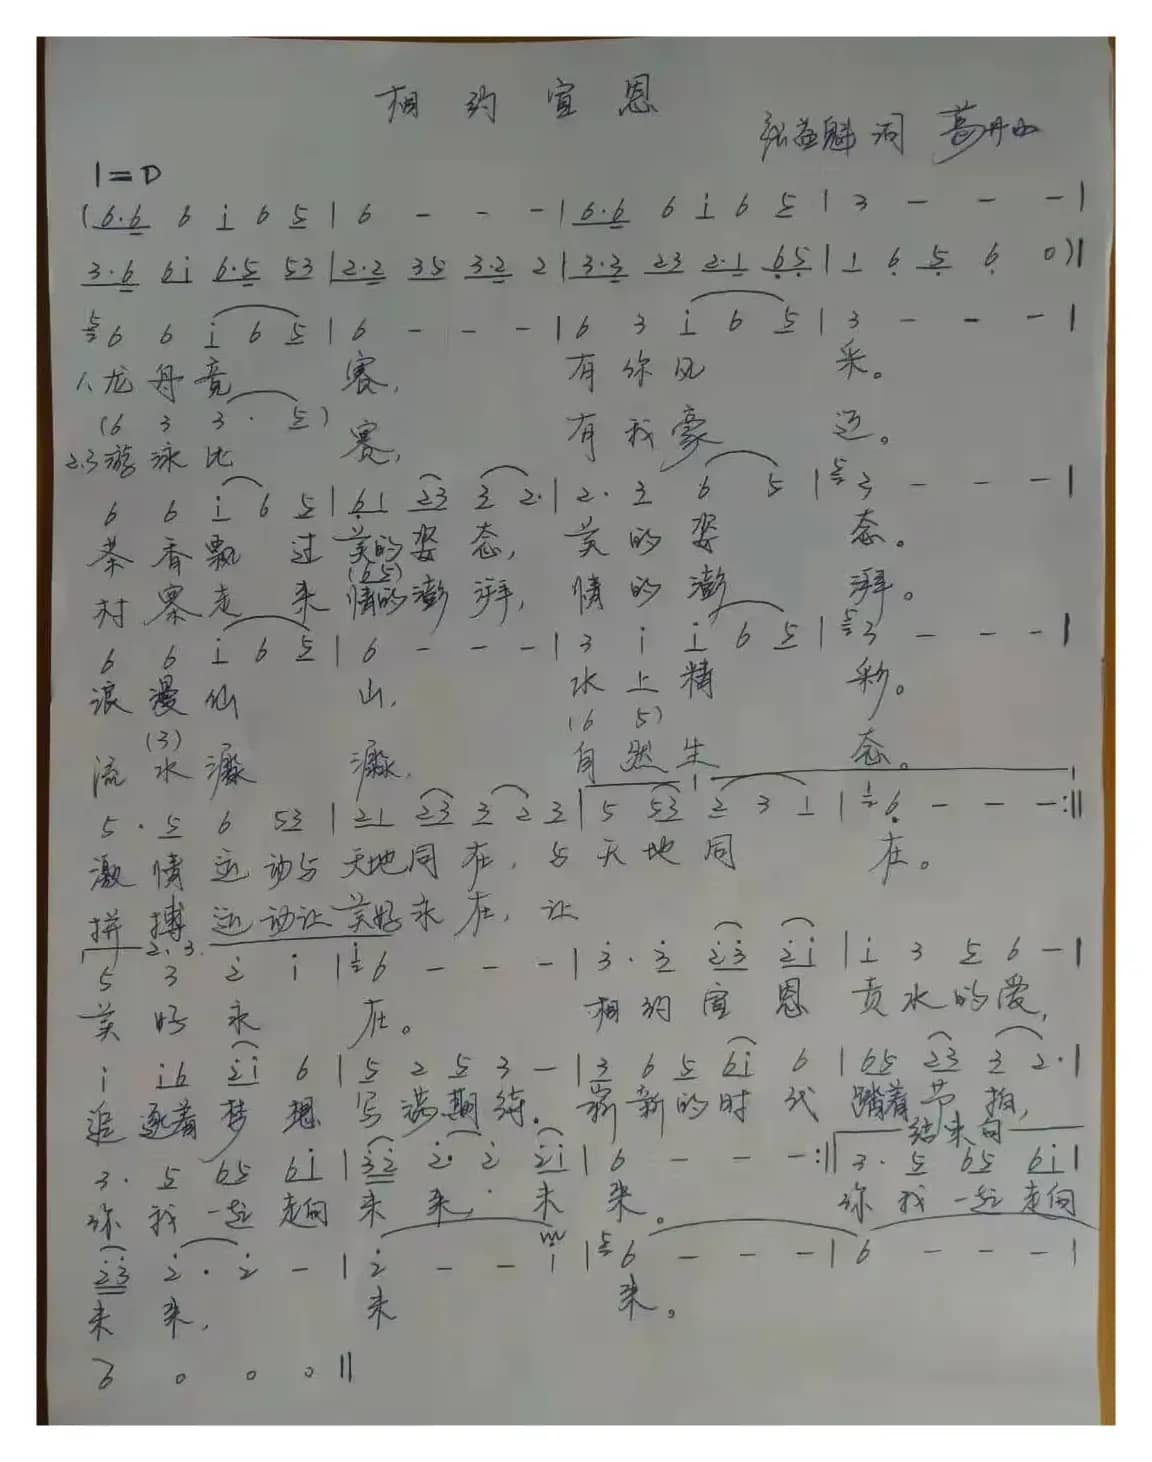 相约宣恩
张益魁词 葛丹曲
1=D
(6·6 6 i 6 5 | 6 - - - | 6·6 6 i 6 5 | 3 - - - |
3·6 6i 6·5 53 | 2·2 35 3·2 2 | 3·3 23 2·1 65 | 1 6 5 6 0) |
5 6 6 i 6 5 | 6 - - - | 6 3 i 6 5 | 3 - - - |
1、龙舟竞 赛, 有你风 采。
(6 3 3· 5)
2.3游泳比 赛, 有我豪 迈。
6 6 i 6 5 | 61 23 3 2· | 2· 3 6 5 | 5 3 - - - |
茶香飘 过 美的姿态, 美的姿 态。
(65)
村寨走 来 情的澎湃, 情的澎 湃。
6 6 i 6 5 | 6 - - - | 3 i i 6 5 | 5 3 - - - |
浪漫仙 山, 水上精 彩。
(3) (6 5)
流水潺 潺, 自然生 态。
5· 5 6 53 | 21 23 3 2 3 | 5 53 2 3 1 | 1 6 - - - :||
激情运动与天地同在, 与天地同 在。
拼搏运动让美好永在, 让
2.3.
5 3 2 i | i 6 - - - | 3· 3 23 2i | i 3 5 6 - |
美好永 在。 相约宣恩 贡水的爱,
i i6 2i 6 | 5 2 5 3 - | 3 6 5 6i 6 | 65 23 3 2· |
追逐着梦想 写满期待。 崭新的时代 踏着节拍,
结束句
3· 5 65 6i | 32 2· 2 2i | 6 - - - :|| 3· 5 65 6i |
你我一起走向 未来, 未 来。 你我一起走向
23 2· 2 - | 2 - - i | 5 6 - - - | 6 - - - |
未来, 未 来。
6 0 0 0 ||